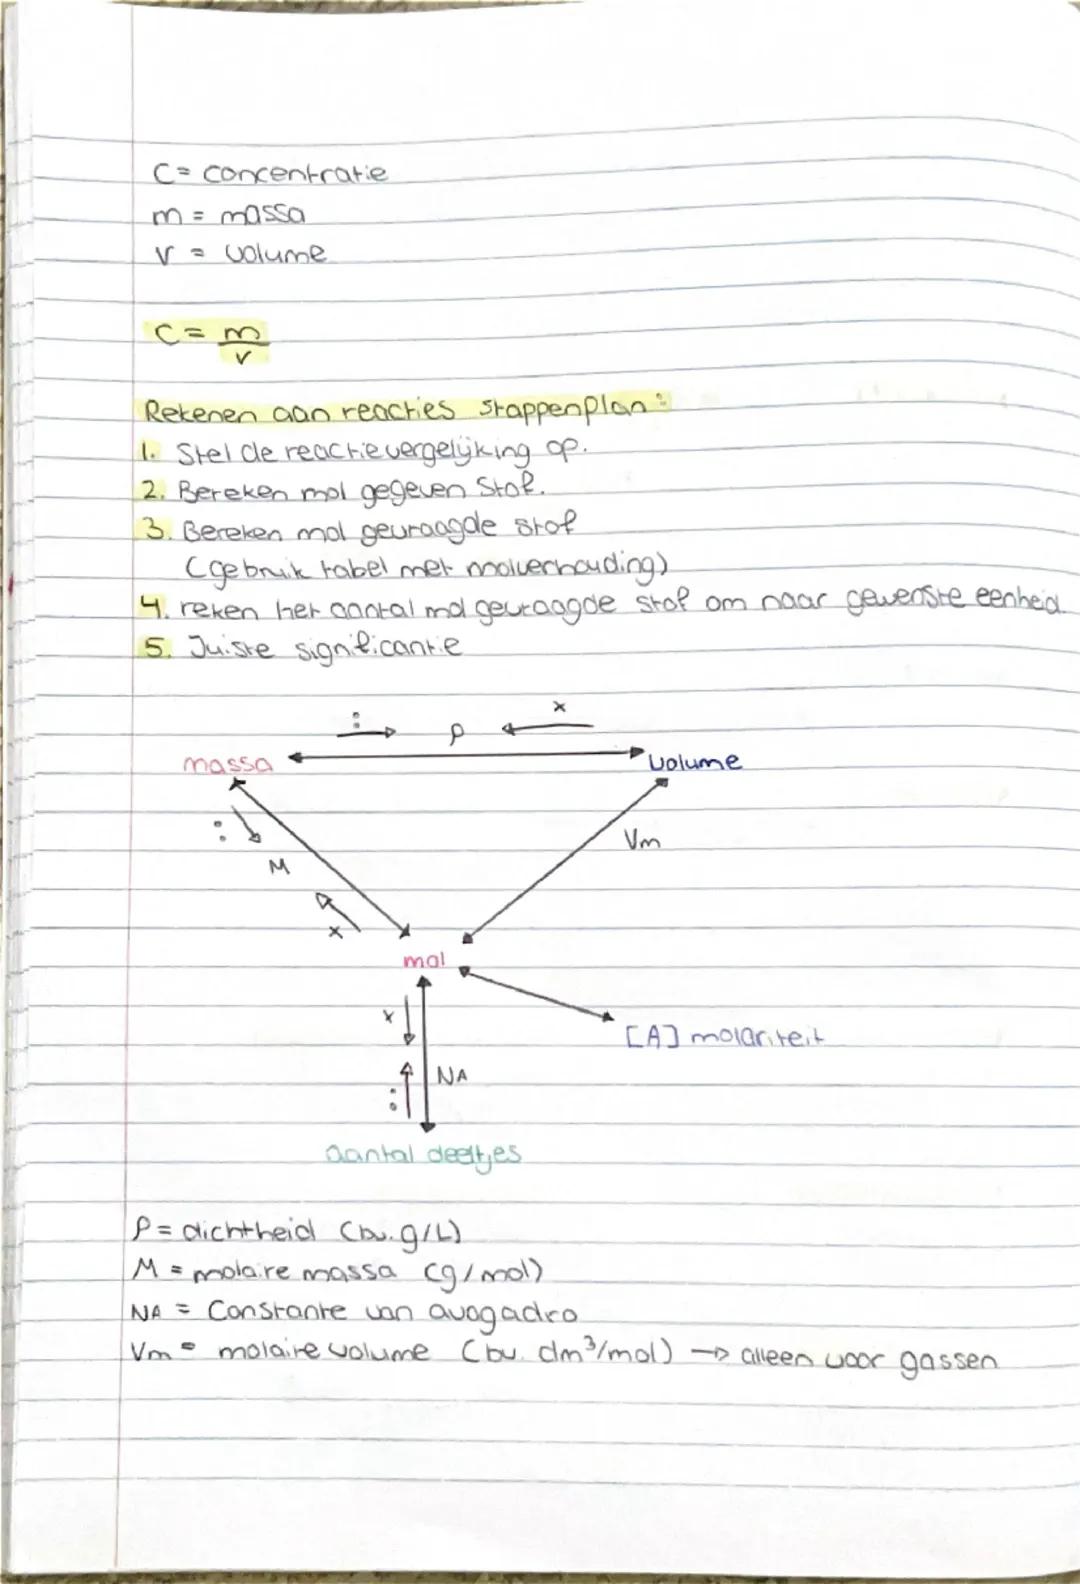 C = concentratie
m = massa
v = volume
C = m
v
Rekenen aan reacties stappenplan:
1. Stel de reactievergelijking op.
2. Bereken mol gegeven stof.
3. Bereken mol gevraagde stof
(gebruik tabel met molverhouding)
4. reken het aantal mol gevraagde stof om naar gewenste eenheid
5. Juiste significantie
: ρ x
massa volume
: M x
Vm
mol
x
[A] molariteit
: NA
aantal deeltjes
ρ = dichtheid (bv. g/L)
M = molaire massa (g/mol)
NA = Constante van avogadro
Vm = molaire volume (bv. dm³/mol) → alleen voor gassen